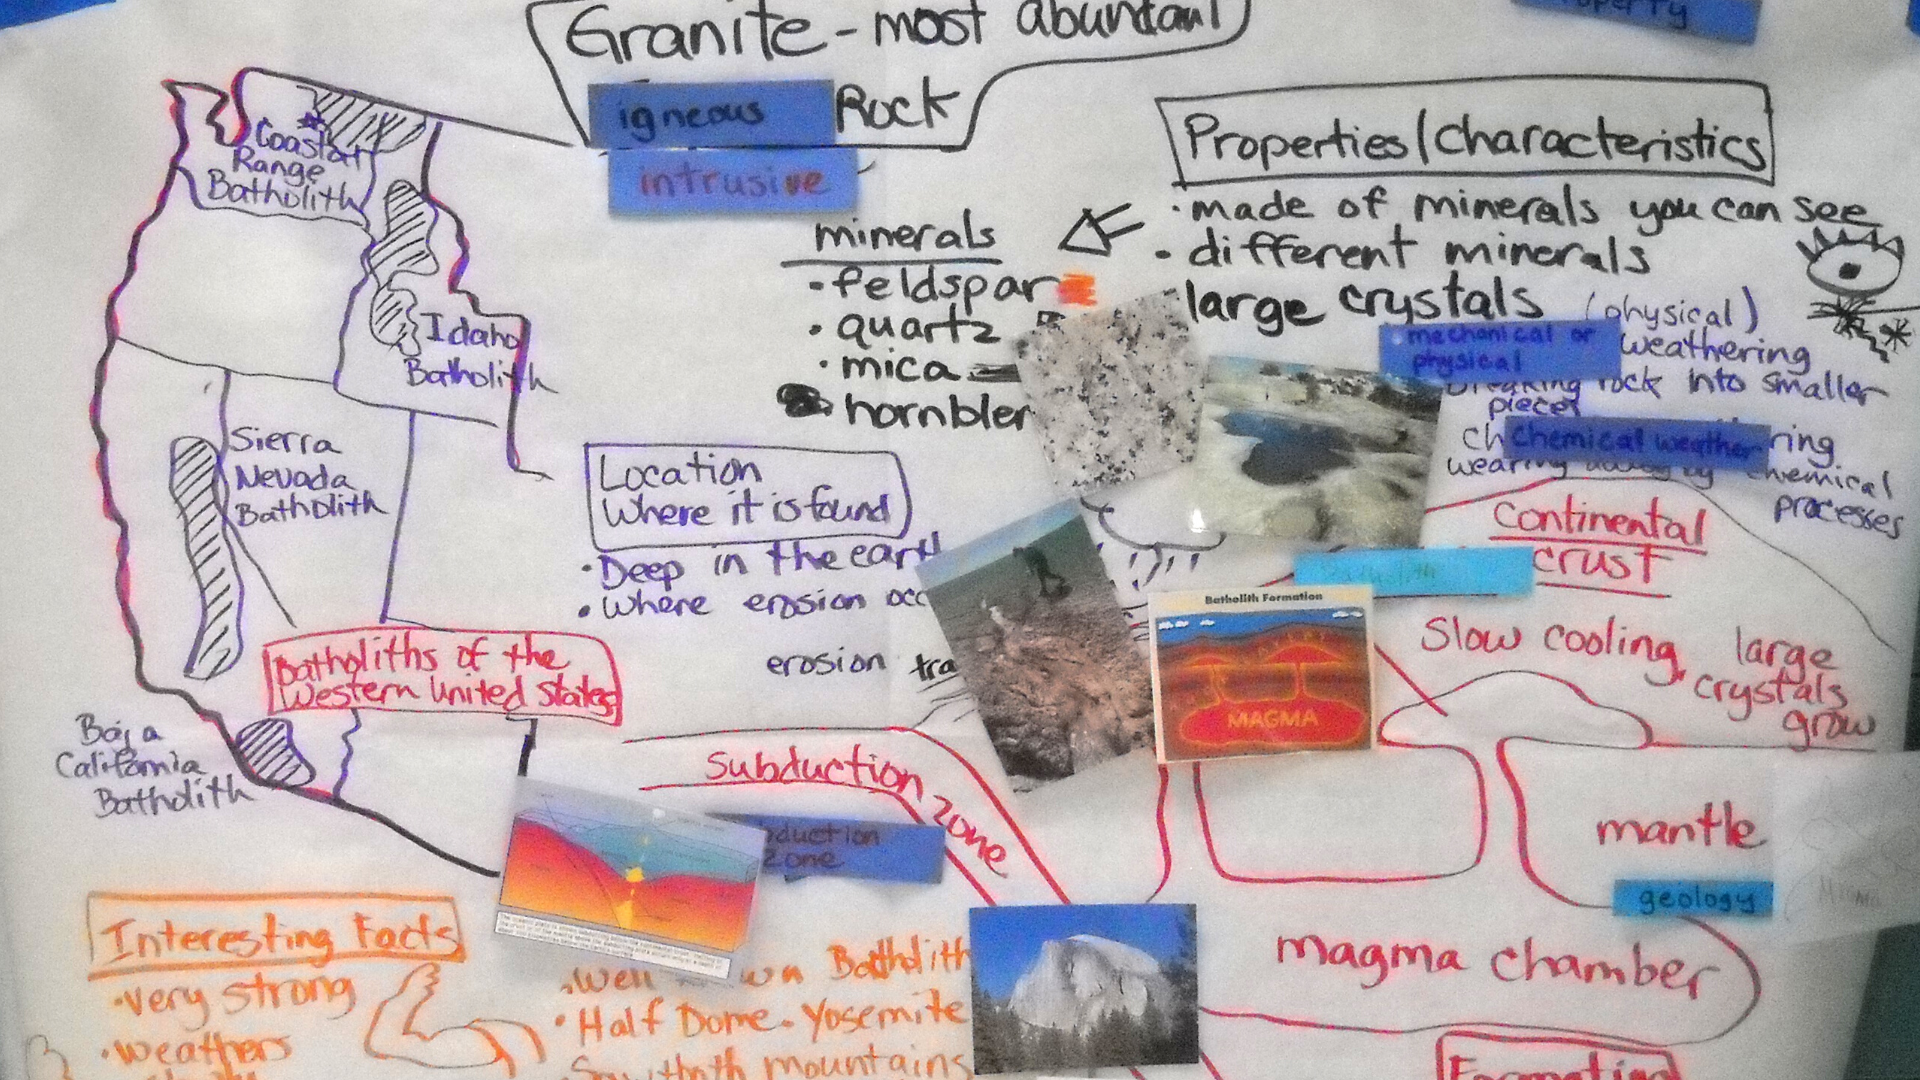 Granite - most abundant
igneous Rock
intrusive
Property
Coastal
Range
Batholith
Idaho
Batholith
Sierra
Nevada
Batholith
Batholiths of the
Western United States
Baja
California
Batholith
minerals
• feldspar
• quartz
• mica
hornblen
Properties/Characteristics
• made of minerals you can see
• different minerals
• large crystals
(physical)
mechanical or
physical
weathering
breaking rock into smaller
pieces
Chemical weathering
wearing away by chemical
processes
Location
Where it is found
• Deep in the earth
• Where erosion occ
erosion
Continental
crust
Slow cooling, large
crystals
grow
Batholith Formation
MAGMA
Subduction zone
duction
zone
mantle
geology
magma chamber
Formation
Interesting Facts
• very strong
• weathers
• Well Batholith
• Half Dome. Yosemite
Sawtooth mountains